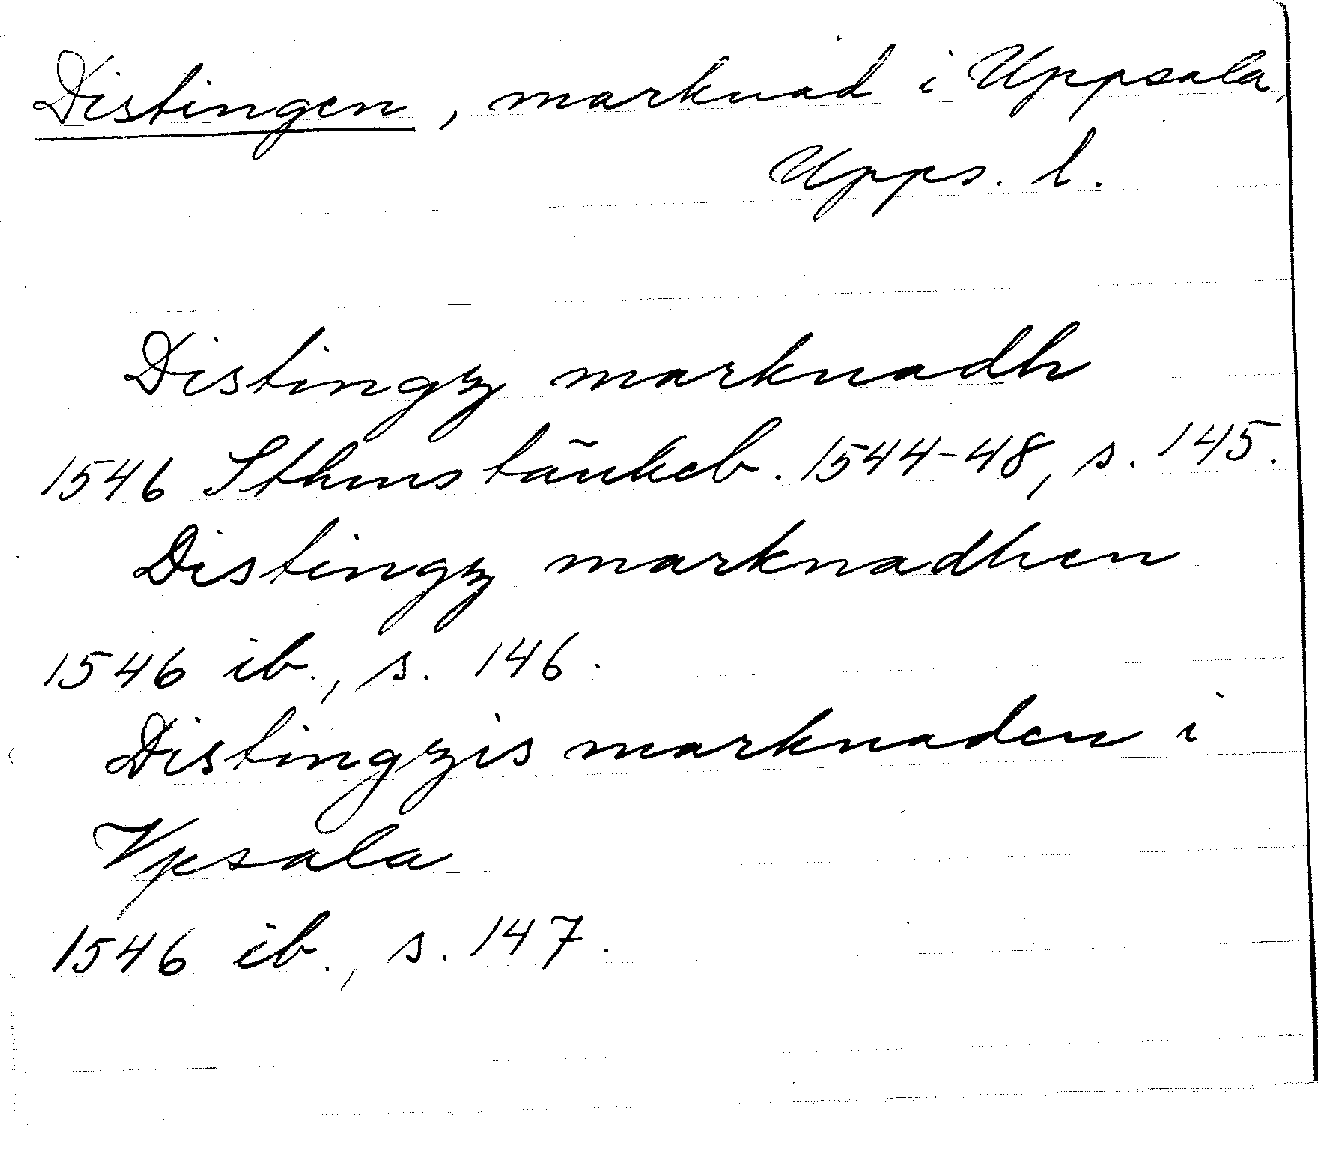 Distingen, marknad i Uppsala,
Upps. l.
Distingz marknadh
1546 Sthms tänkeb. 1544-48, s. 145.
Distingz marknadhen
1546 ib., s. 146.
Distingzis marknaden i
Vpsala
1546 ib., s. 147.